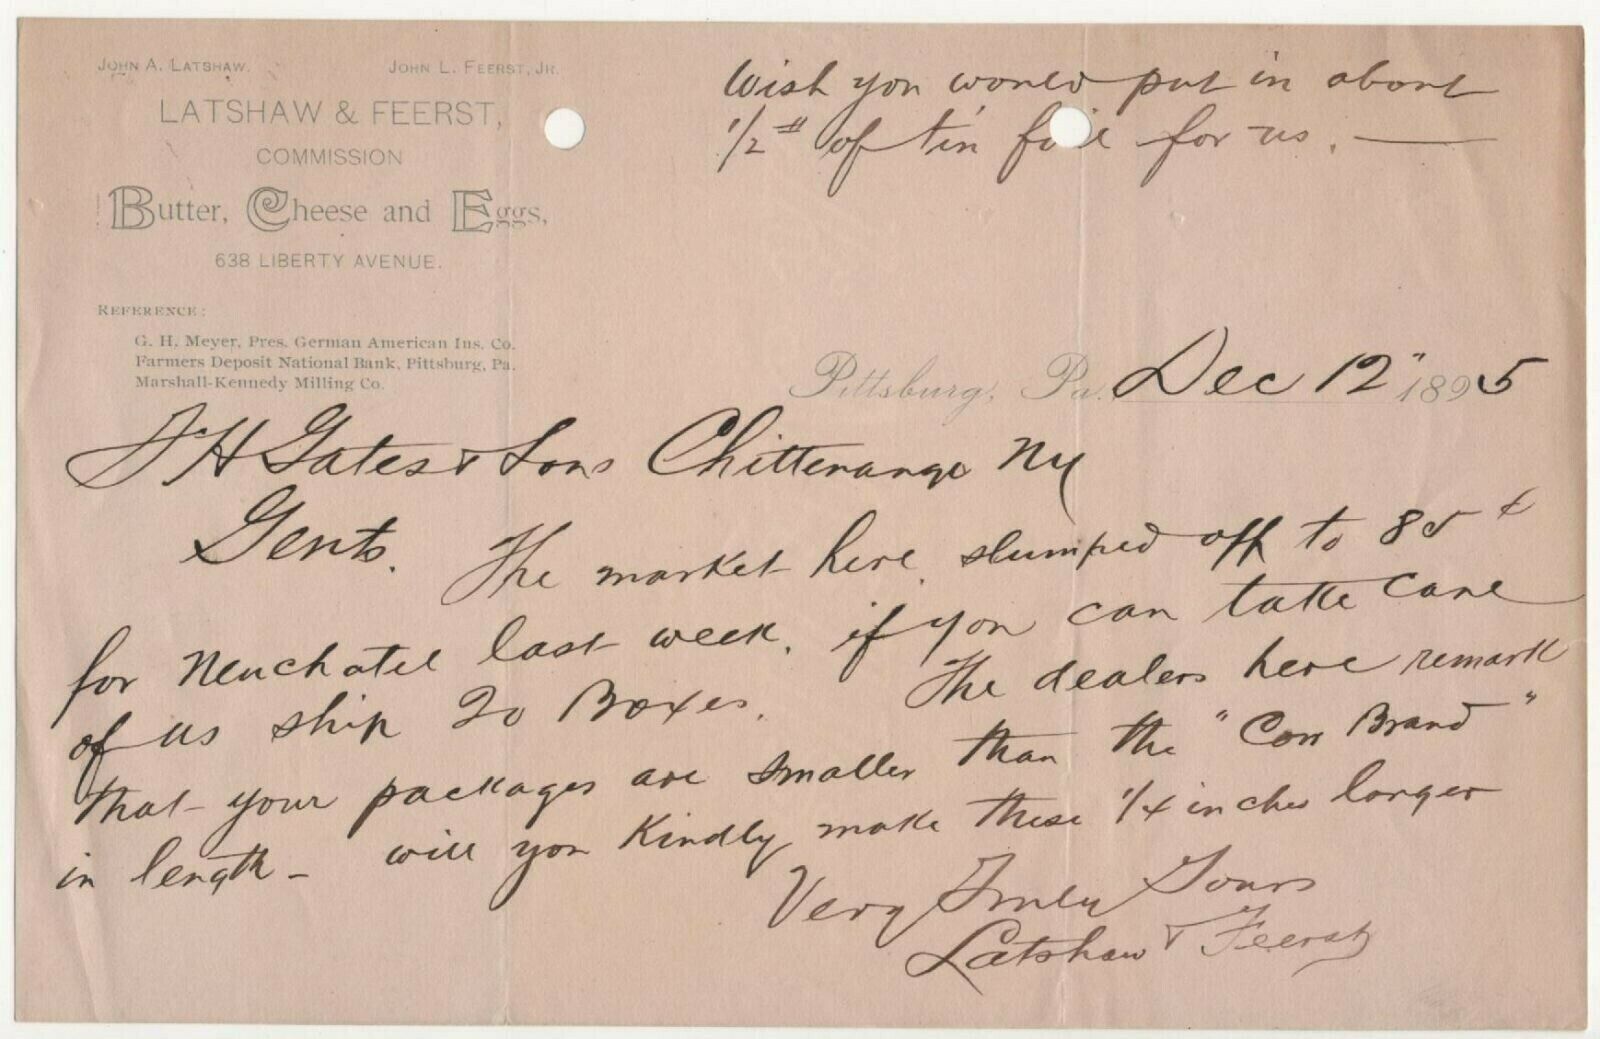 JOHN A. LATSHAW. JOHN L. FEERST, JR.
LATSHAW & FEERST,
COMMISSION
Butter, Cheese and Eggs,
638 LIBERTY AVENUE.
REFERENCE:
G. H. Meyer, Pres. German American Ins. Co.
Farmers Deposit National Bank, Pittsburg, Pa.
Marshall-Kennedy Milling Co.
Wish you would put in about
1/2 # of tin foil for us. —
Pittsburg, Pa. Dec 12" 1895
H Gates & Sons Chittenango NY
Gents. The market here slumped off to 85¢
for Neuchatel last week. if you can take care
of us ship 20 Boxes. The dealers here remark
that your packages are smaller than the "Cow Brand"
in length - will you kindly make these 1/4 inches longer
Very Truly Yours
Latshaw & Feerst